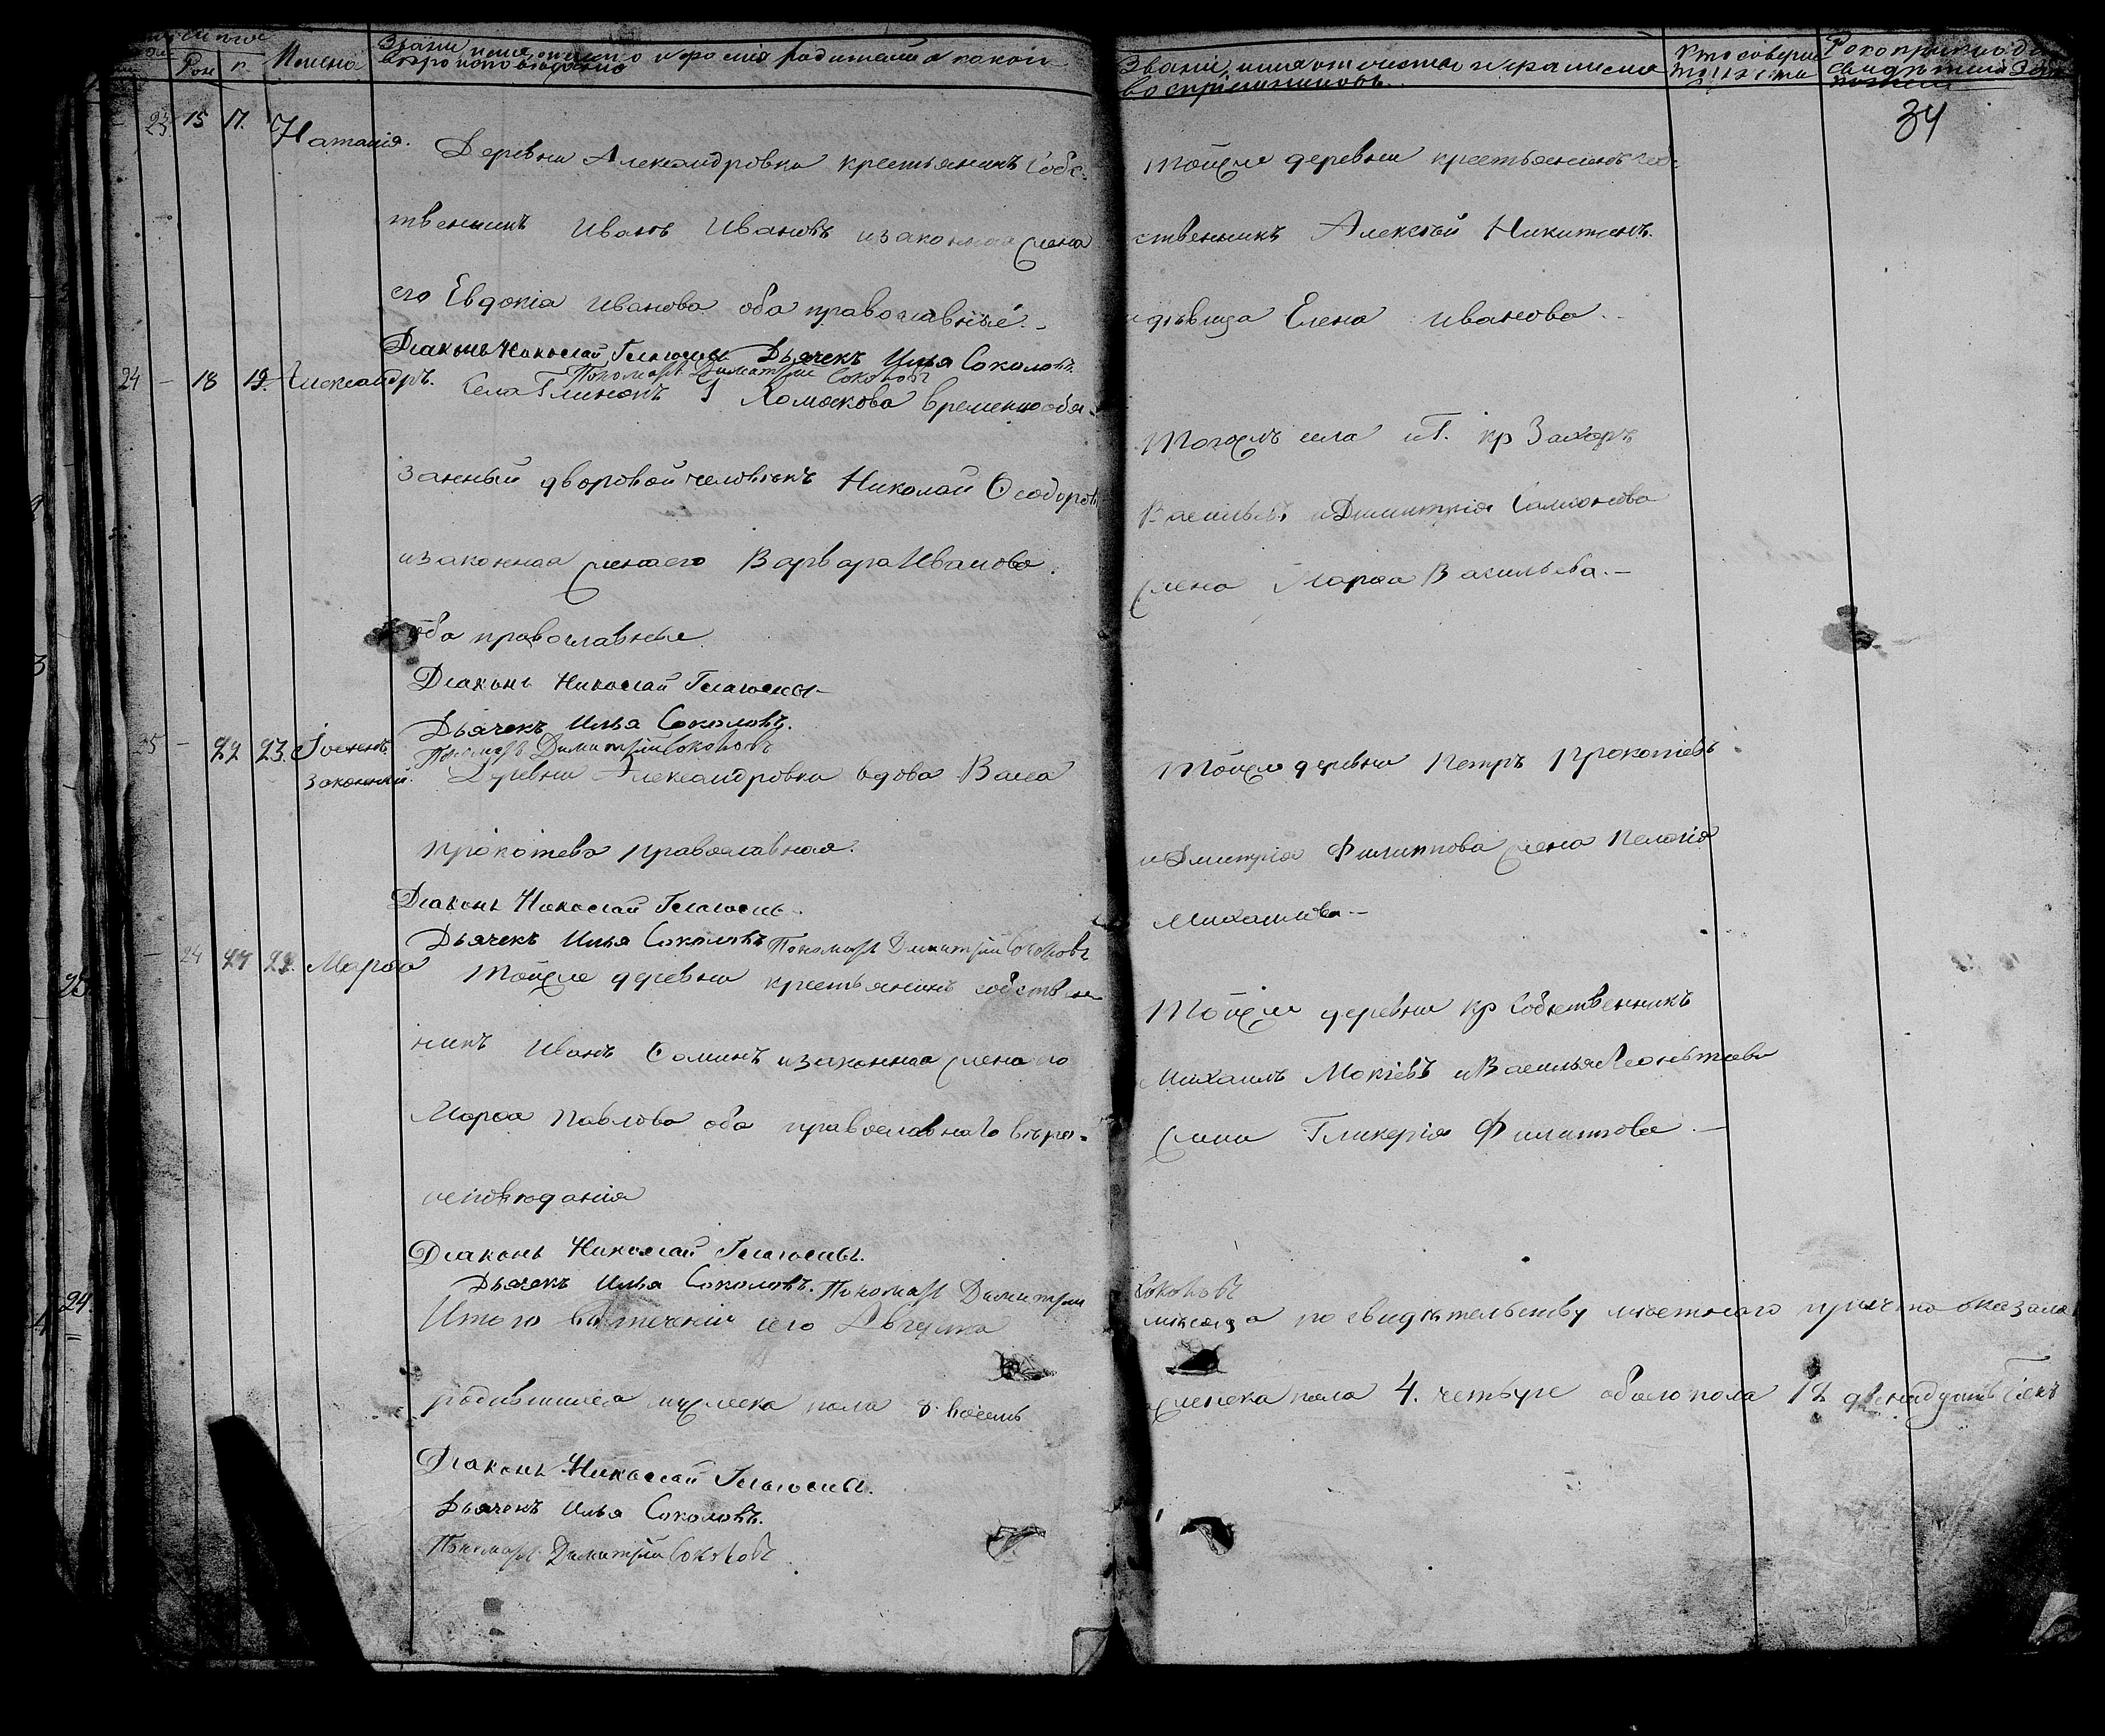 Рож
Имена
Званіе имя отчество и фамилія родителей и какого
вѣроисповѣданія
Званіе, имя отчество и фамилія
воспріемниковъ.
Кто соверш
Рукоприкладс
свидѣтелей
34
23. 15 17. Наталія. Деревни Александровки крестьянинъ Собс-
твенникъ Иванъ Ивановъ и законная жена
его Евдокія Иванова оба православные. –
тойже деревни крестьянинъ соб-
ственникъ Алексѣй Никитинъ.
и дѣвица Елена Иванова. –
Діаконъ Николай Дьячекъ Илья Соколовъ.
Пономарь Димитрій Соколовъ
24 – 18 19. Александръ. Села Глинокъ Хомякова временнообя-
занный дворовой человѣкъ Николай Ѳеодоровъ
и законная жена его Варвара Иванова.
оба православные.
тогожъ села кр Захаръ
Васильевъ и Димитрія Самсонова
жена Марѳа Васильева. –
Діаконъ Николай
Дьячекъ Илья Соколовъ.
Пономарь Димитрій Соколовъ
25 – 22 23. незаконный. Деревни Александровки вдова Васса
Прокопьева православная.
тойже деревни Петръ Прокопіевъ
и Дмитрія Филиппова жена Пелагія
Михаилова –
Діаконъ Николай
Дьячекъ Илья Соколовъ Пономарь Димитрій Соколовъ
– 24 Марѳа тойже деревни крестьянинъ собствен-
никъ Иванъ Ѳоминъ и законная жена его
Марѳа Павлова оба православнаго вѣро-
исповѣданія
тойже деревни кр собственникъ
Михаилъ Мокіевъ и Василья Леонтьева
жена Гликерія Филиппова. –
Діаконъ Николай
Дьячекъ Илья Соколовъ. Пономарь Димитрій Соколовъ
Итого въ теченіи сего Августа мѣсяца по свидѣтельству мѣстного причта оказалось
родившихся мужеска пола 8 восемь женска пола 4. четыре обоего пола 12 двенадцать человѣкъ
Діаконъ Николай
Дьячекъ Илья Соколовъ.
Пономарь Димитрій Соколовъ